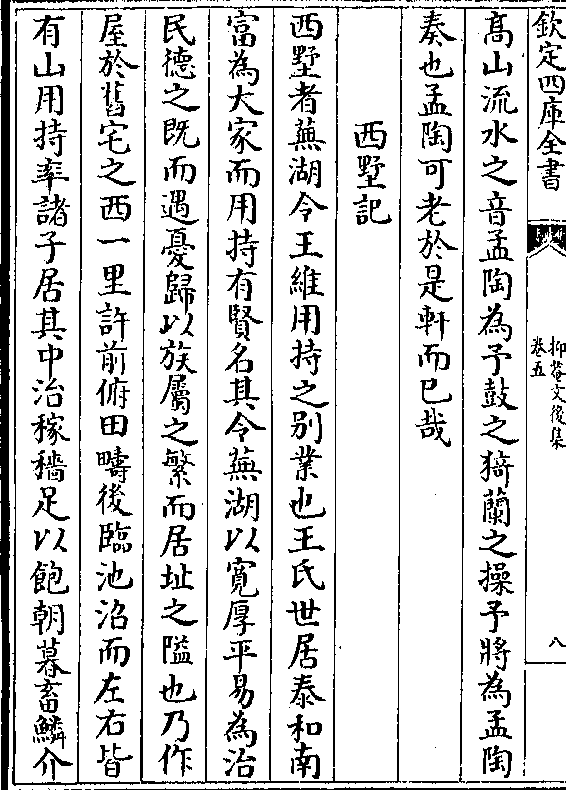 欽定四庫全書
抑菴文後集
卷五
八
髙山流水之音孟陶為予鼓之猗蘭之操予將為孟陶
奏也孟陶可老於是軒而已哉
西墅記
西墅者蕪湖令王維用持之别業也王氏世居泰和南
富為大家而用持有賢名其令蕪湖以寛厚平易為治
民德之既而遇憂歸以族屬之繁而居址之隘也乃作
屋於舊宅之西一里許前俯田疇後臨池沼而左右皆
有山用持率諸子居其中治稼穡足以飽朝暮畜鱗介